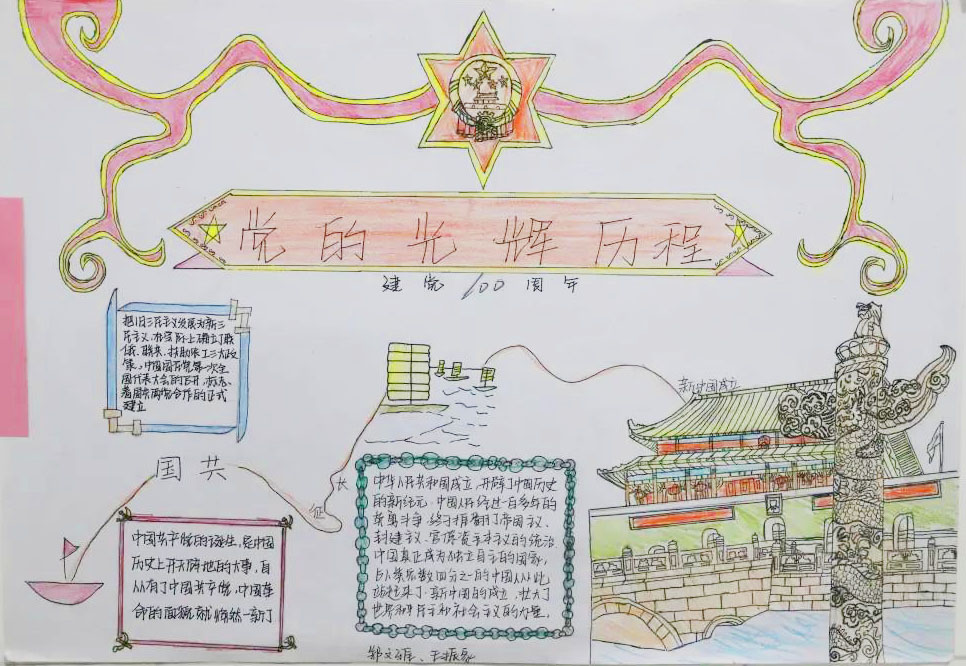 党的光辉历程
建党100周年
把旧三民主义发展为新三
民主义,在实际上确立了联
俄、联共、扶助农工三大政
策,中国国民党第一次全
国代表大会的召开,标志
着国共两党合作的正式
建立
新中国成立
国共
长
征
中国共产党的诞生,是中国
历史上开天辟地的大事,自
从有了中国共产党,中国革
命的面貌就焕然一新了
中华人民共和国成立,开辟了中国历史
的新纪元。中国人民经过一百多年的
英勇斗争,终于推翻了帝国主义、
封建主义、官僚资本主义的统治
中国真正成为独立自主的国家,
占人类总数四分之一的中国人从此
站起来了。新中国的成立,壮大了
世界和平民主和社会主义的力量。